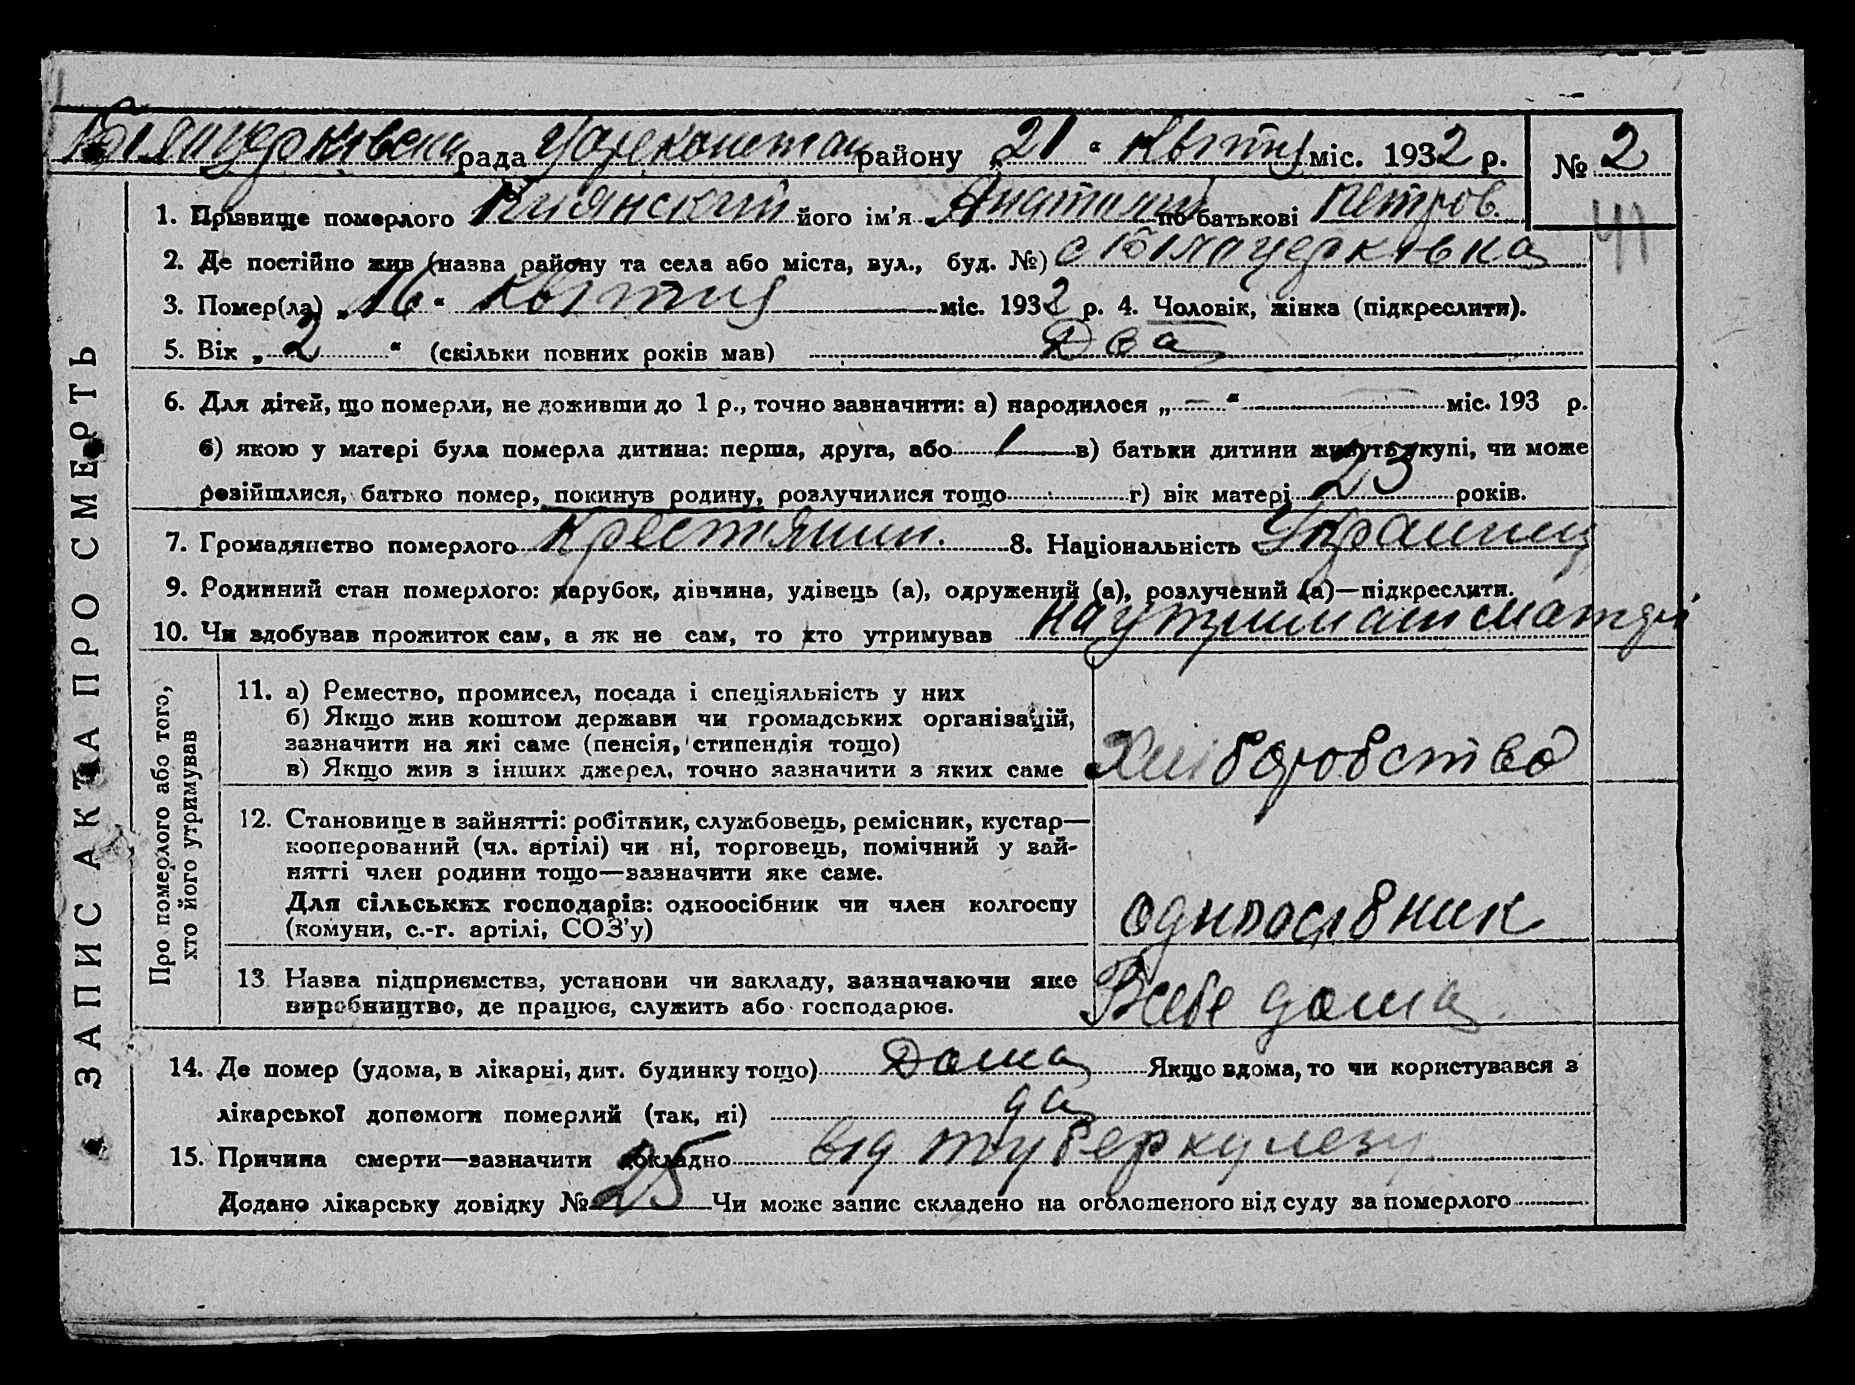 Білицерківська рада району „21“ Квітня міс. 1932 р. № 2
1. Прізвище померлого Киянский його ім’я Анатолий по батькові Петров.
41
2. Де постійно жив (назва району та села або міста, вул., буд. №) с Білацерківка
3. Помер(ла) „16“ Квітня міс. 1932 р. 4. Чоловік, жінка (підкреслити).
5. Вік „2“ (скільки повних років мав) Два
6. Для дітей, що померли, не доживши до 1 р., точно зазначити: а) народилося „—“ — міс. 193 р.
б) якою у матері була померла дитина: перша, друга, або 1 в) батьки дитини живуть укупі, чи може
розійшлися, батько помер, покинув родину, розлучилися тощо г) вік матері 23 років.
7. Громадянство померлого крестянин. 8. Національність Украинец
9. Родинний стан померлого: парубок, дівчина, удівець (а), одружений (а), розлучений (а)—підкреслити.
10. Чи здобував прожиток сам, а як не сам, то хто утримував на утриманні матері
11. а) Ремество, промисел, посада і спеціяльність у них
б) Якщо жив коштом держави чи громадських організацій,
зазначити на які саме (пенсія, стипендія тощо)
в) Якщо жив з інших джерел, точно зазначити з яких саме
Хліборобство
12. Становище в зайнятті: робітник, службовець, ремісник, кустар—
кооперований (чл. артілі) чи ні, торговець, помічний у зай-
нятті член родини тощо—зазначити яке саме.
Для сільських господарів: одноосібник чи член колгоспу
(комуни, с.-г. артілі, СОЗ’у)
одноосібник
13. Назва підприємства, установи чи закладу, зазначаючи яке
виробництво, де працює, служить або господарює.
В себе дома
14. Де помер (удома, в лікарні, дит. будинку тощо) Дома Якщо вдома, то чи користувався з
лікарської допомоги померлий (так, ні) да
15. Причина смерти—зазначити докладно від туберкулезу
Додано лікарську довідку № 25 Чи може запис складено на оголошеного від суду за померлого
ЗАПИС АКТА ПРО СМЕРТЬ
Про померлого або того,
хто його утримував